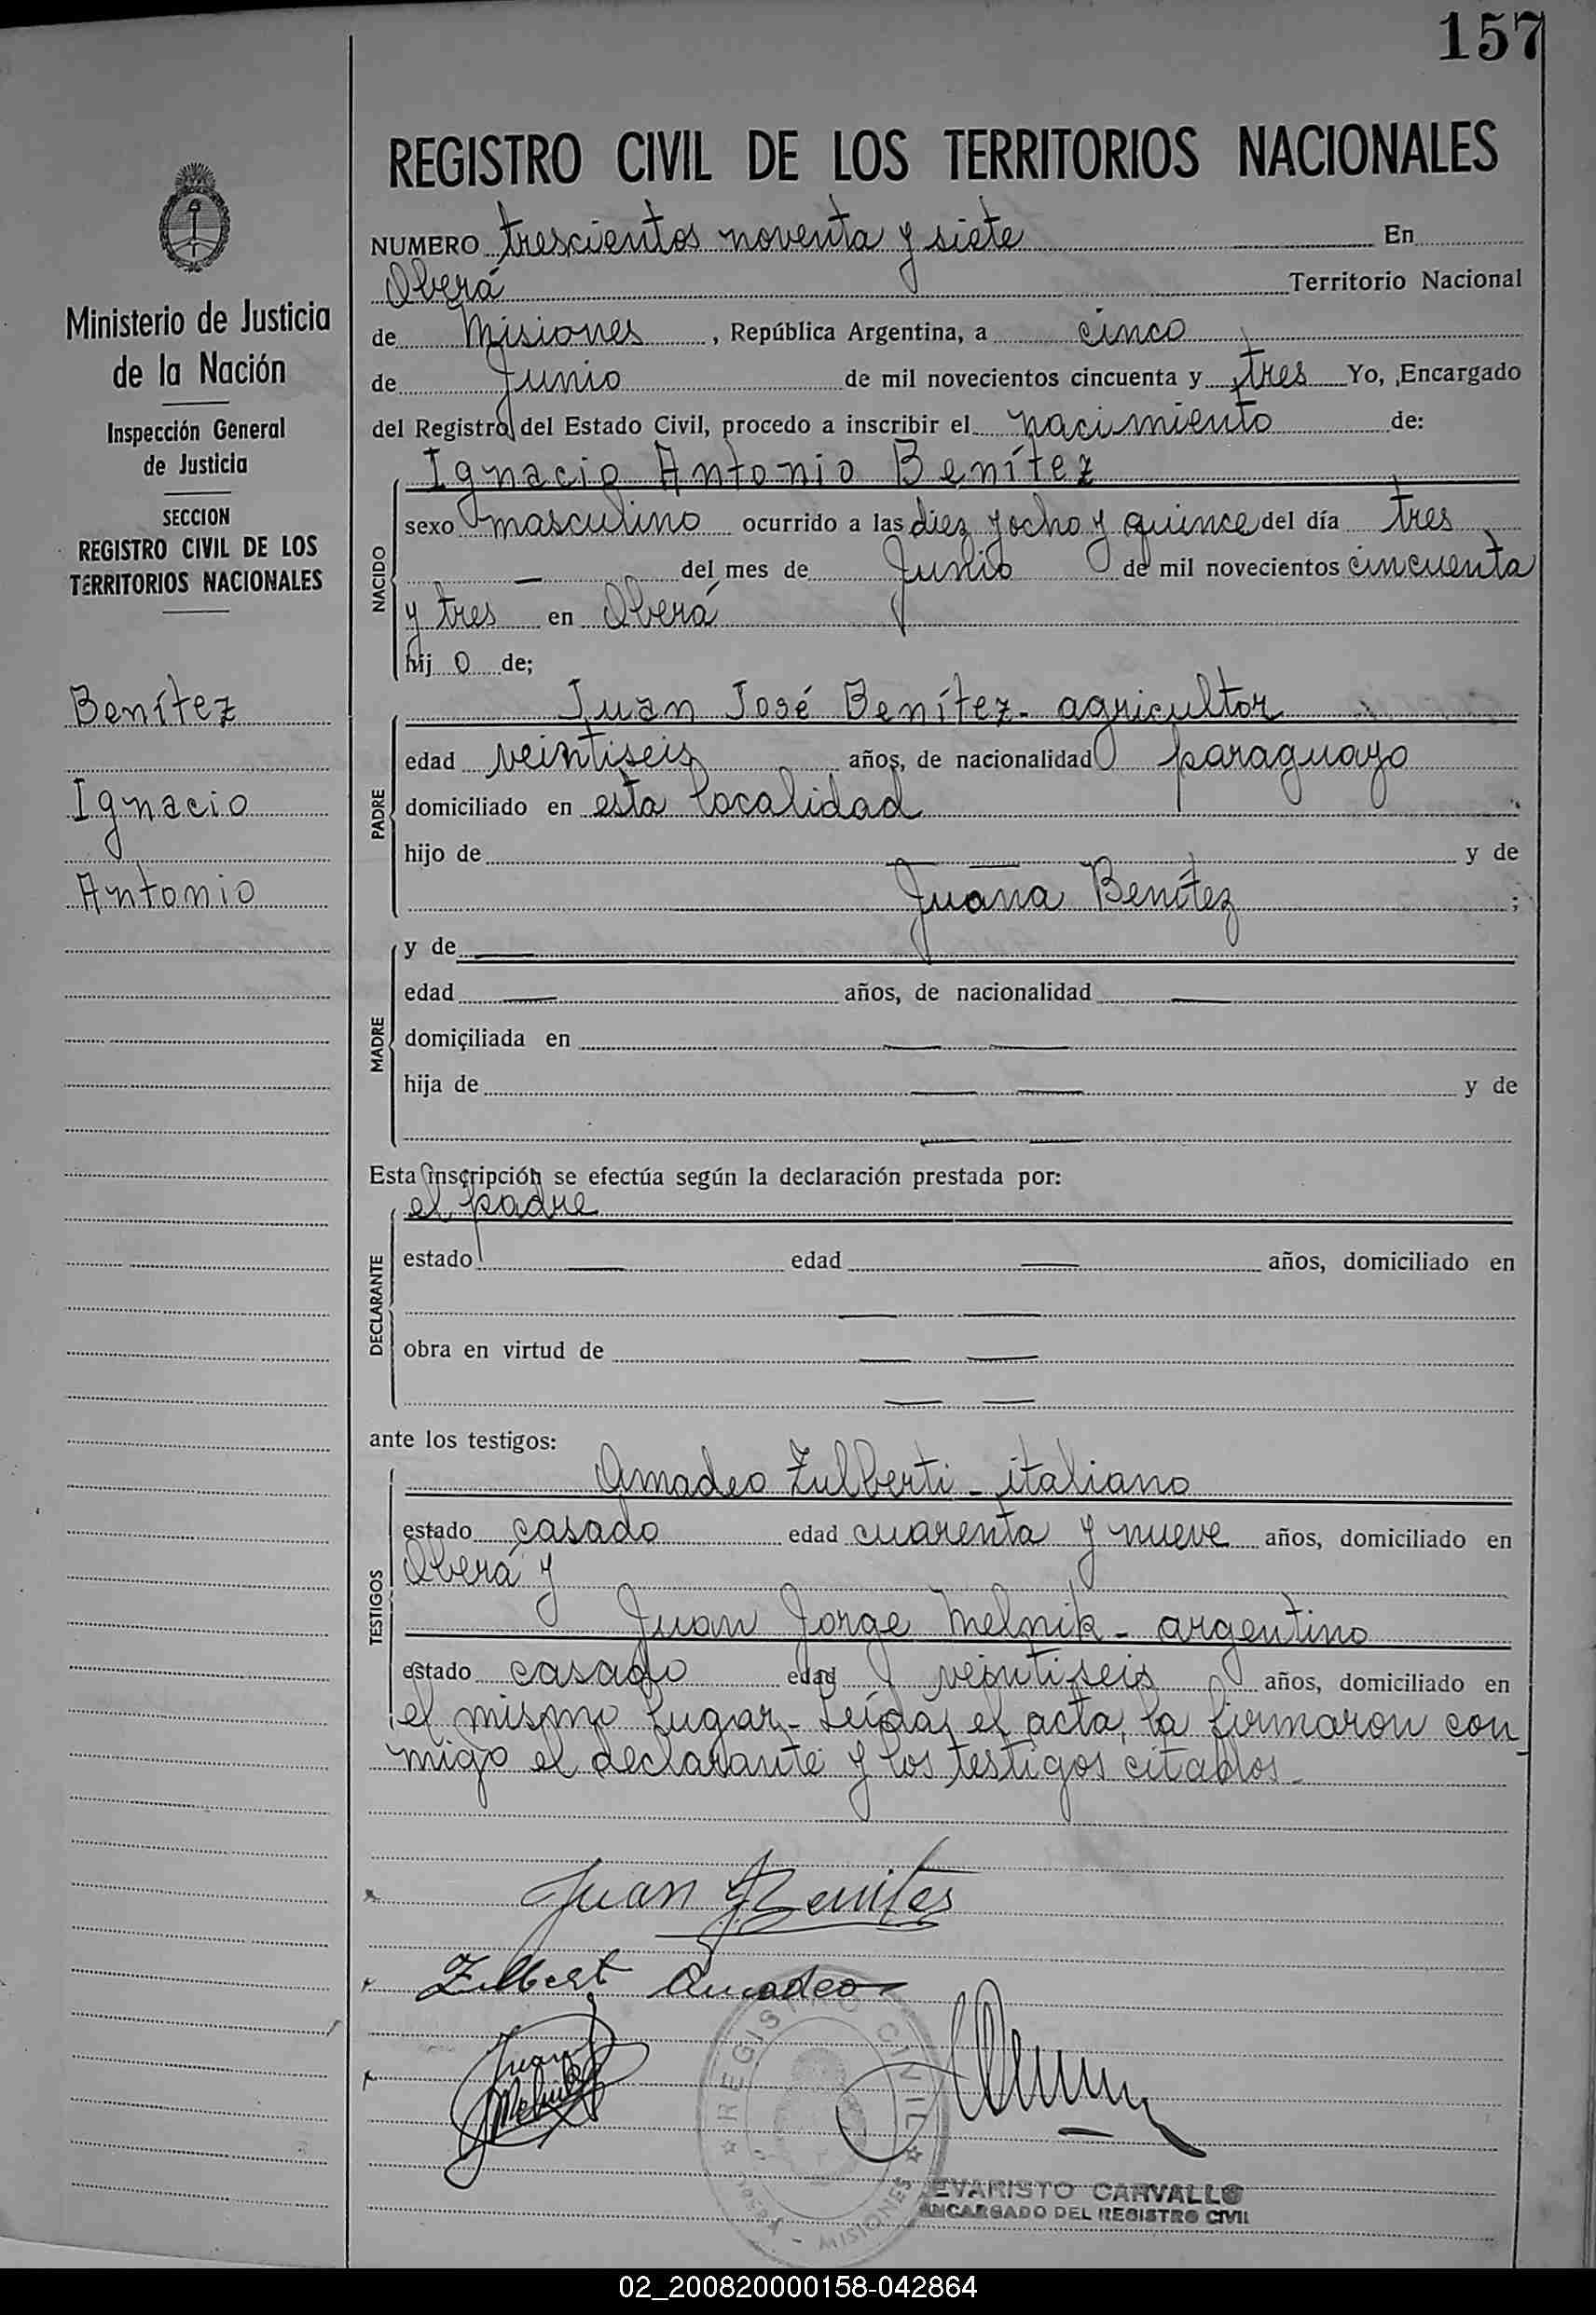 157
REGISTRO CIVIL DE LOS TERRITORIOS NACIONALES
NUMERO trescientos noventa y siete En
Oberá Territorio Nacional
de Misiones, República Argentina, a cinco
de Junio de mil novecientos cincuenta y tres Yo, Encargado
del Registro del Estado Civil, procedo a inscribir el nacimiento de:
Ministerio de Justicia
de la Nación
Inspección General
de Justicia
SECCION
REGISTRO CIVIL DE LOS
TERRITORIOS NACIONALES
Benítez
Ignacio
Antonio
NACIDO
Ignacio Antonio Benítez
sexo masculino ocurrido a las diez y ocho y quince del día tres
— del mes de Junio de mil novecientos cincuenta
y tres en Oberá
hijo de;
PADRE
Juan José Benítez - agricultor
edad veintiseis años, de nacionalidad paraguayo
domiciliado en esta localidad
hijo de — — y de
Juana Benítez ;
MADRE
y de —
edad — años, de nacionalidad —
domiciliada en — —
hija de — — y de
— —
Esta inscripción se efectúa según la declaración prestada por:
DECLARANTE
el padre
estado — edad — años, domiciliado en
— —
obra en virtud de — —
— —
ante los testigos:
TESTIGOS
Amadeo Zulberti - italiano
estado casado edad cuarenta y nueve años, domiciliado en
Oberá y
Juan Jorge Melnik - argentino
estado casado edad veintiseis años, domiciliado en
el mismo lugar - Leída el acta, la firmaron con
migo el declarante y los testigos citados -
Juan J Benites
Zilbert Amadeo
Juan J
Melnik
REGISTRO CIVIL
OBERA - MISIONES
EVARISTO CARVALLO
ENCARGADO DEL REGISTRO CIVIL
02_200820000158-042864